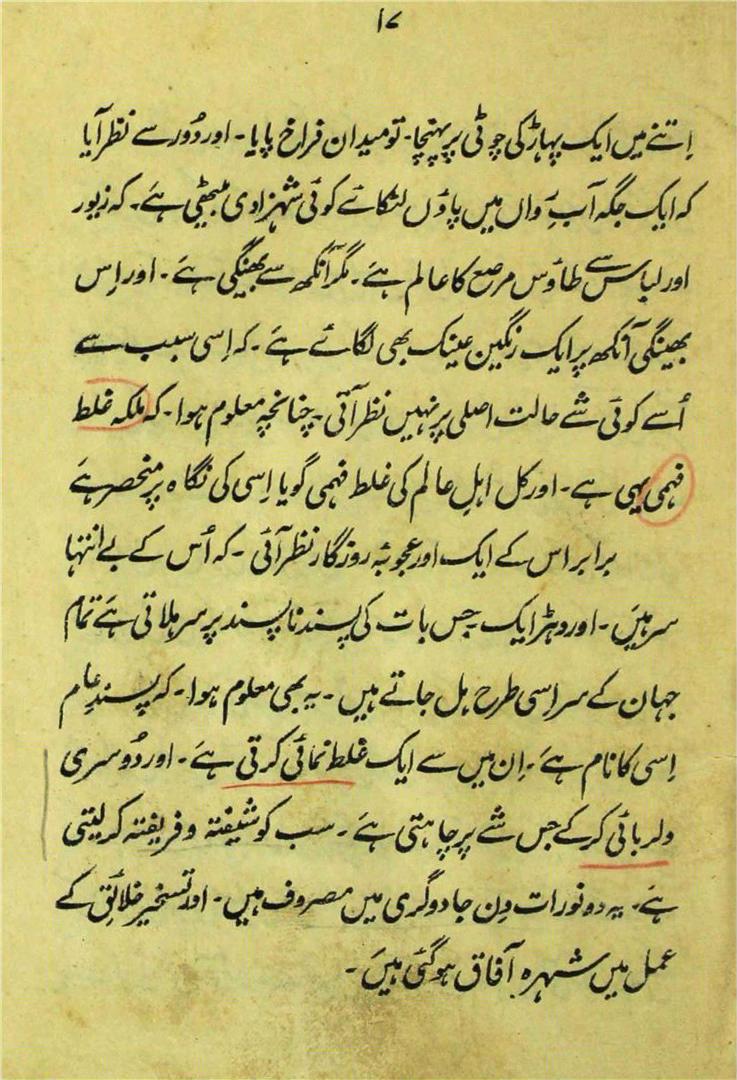 ۱۷
اِتنے میں ایک پہاڑ کی چوٹی پر پہنچا۔ تو میدان فراخ پایا۔ اور دُور سے نظر آیا
کہ ایک جگہ آبِ رَواں میں پاؤں لٹکائے کوئی شہزادی بیٹھی ہے۔ کہ زیور
اور لباس سے طاؤس مرصع کا عالم ہے۔ مگر آنکھ سے بھینگی ہے۔ اور اِس
بھینگی آنکھ پر ایک رنگین عینک بھی لگائے ہے۔ کہ اِسی سبب سے
اُسے کوئی شے حالت اصلی پر نہیں نظر آتی۔ چنانچہ معلوم ہوا۔ کہ ملکہ غلط
فہمی یہی ہے۔ اور کل اہلِ عالم کی غلط فہمی گویا اِسی کی نگاہ پر منحصر ہے
برابر اس کے ایک اور عجوبۂ روزگار نظر آئی۔ کہ اُس کے بے انتہا
سر ہیں۔ اور دھڑ ایک۔ جس بات کی پسند ناپسند پر سر ہلاتی ہے تمام
جہان کے سر اِسی طرح ہل جاتے ہیں۔ یہ بھی معلوم ہوا۔ کہ پسندِ عام
اِسی کا نام ہے۔ اِن میں سے ایک غلط نمائی کرتی ہے۔ اور دُوسری
دلربائی کر کے جس شے پر چاہتی ہے۔ سب کو شیفتہ و فریفتہ کر لیتی
ہے۔ یہ دونو رات دِن جادوگری میں مصروف ہیں۔ اور تسخیر خلائق کے
عمل میں شہرہ آفاق ہو گئی ہیں۔